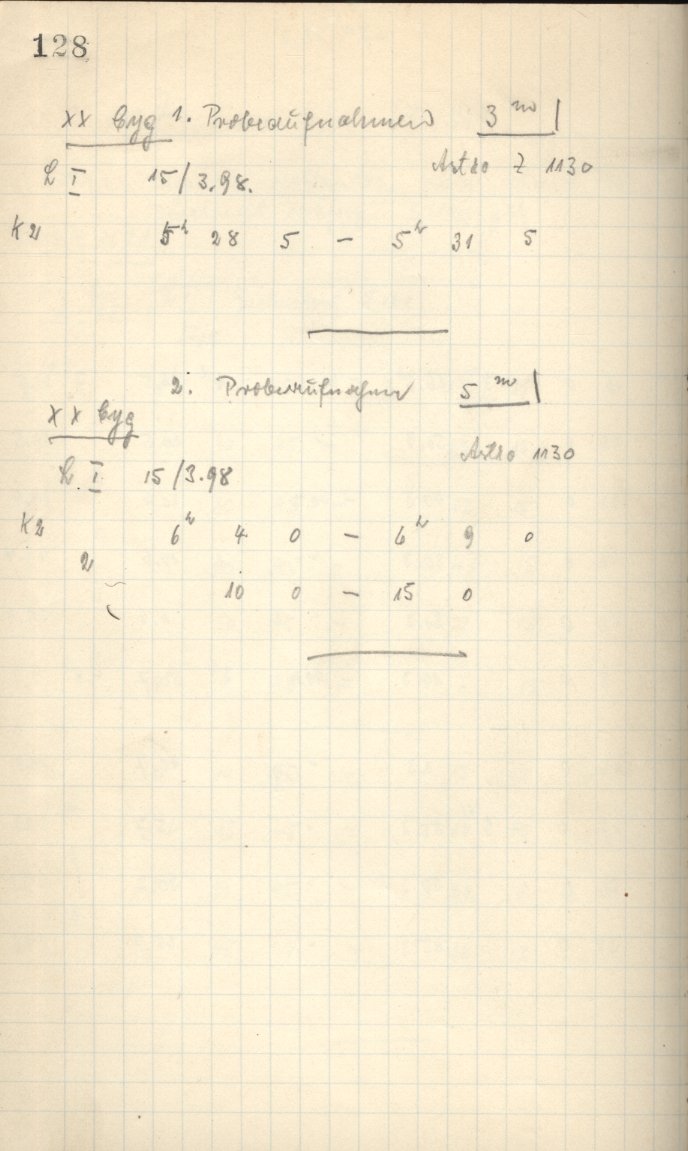 128
XX Cyg 1. Probeaufnahmen 3 m
Astro Z 1130
L I 15/3.98.
K2 5h 28 5 — 5h 31 5
2. Probeaufnahme 5 m
XX Cyg
Astro 1130
L I 15/3.98
K2 6h 4 0 — 6h 9 0
2
10 0 — 15 0